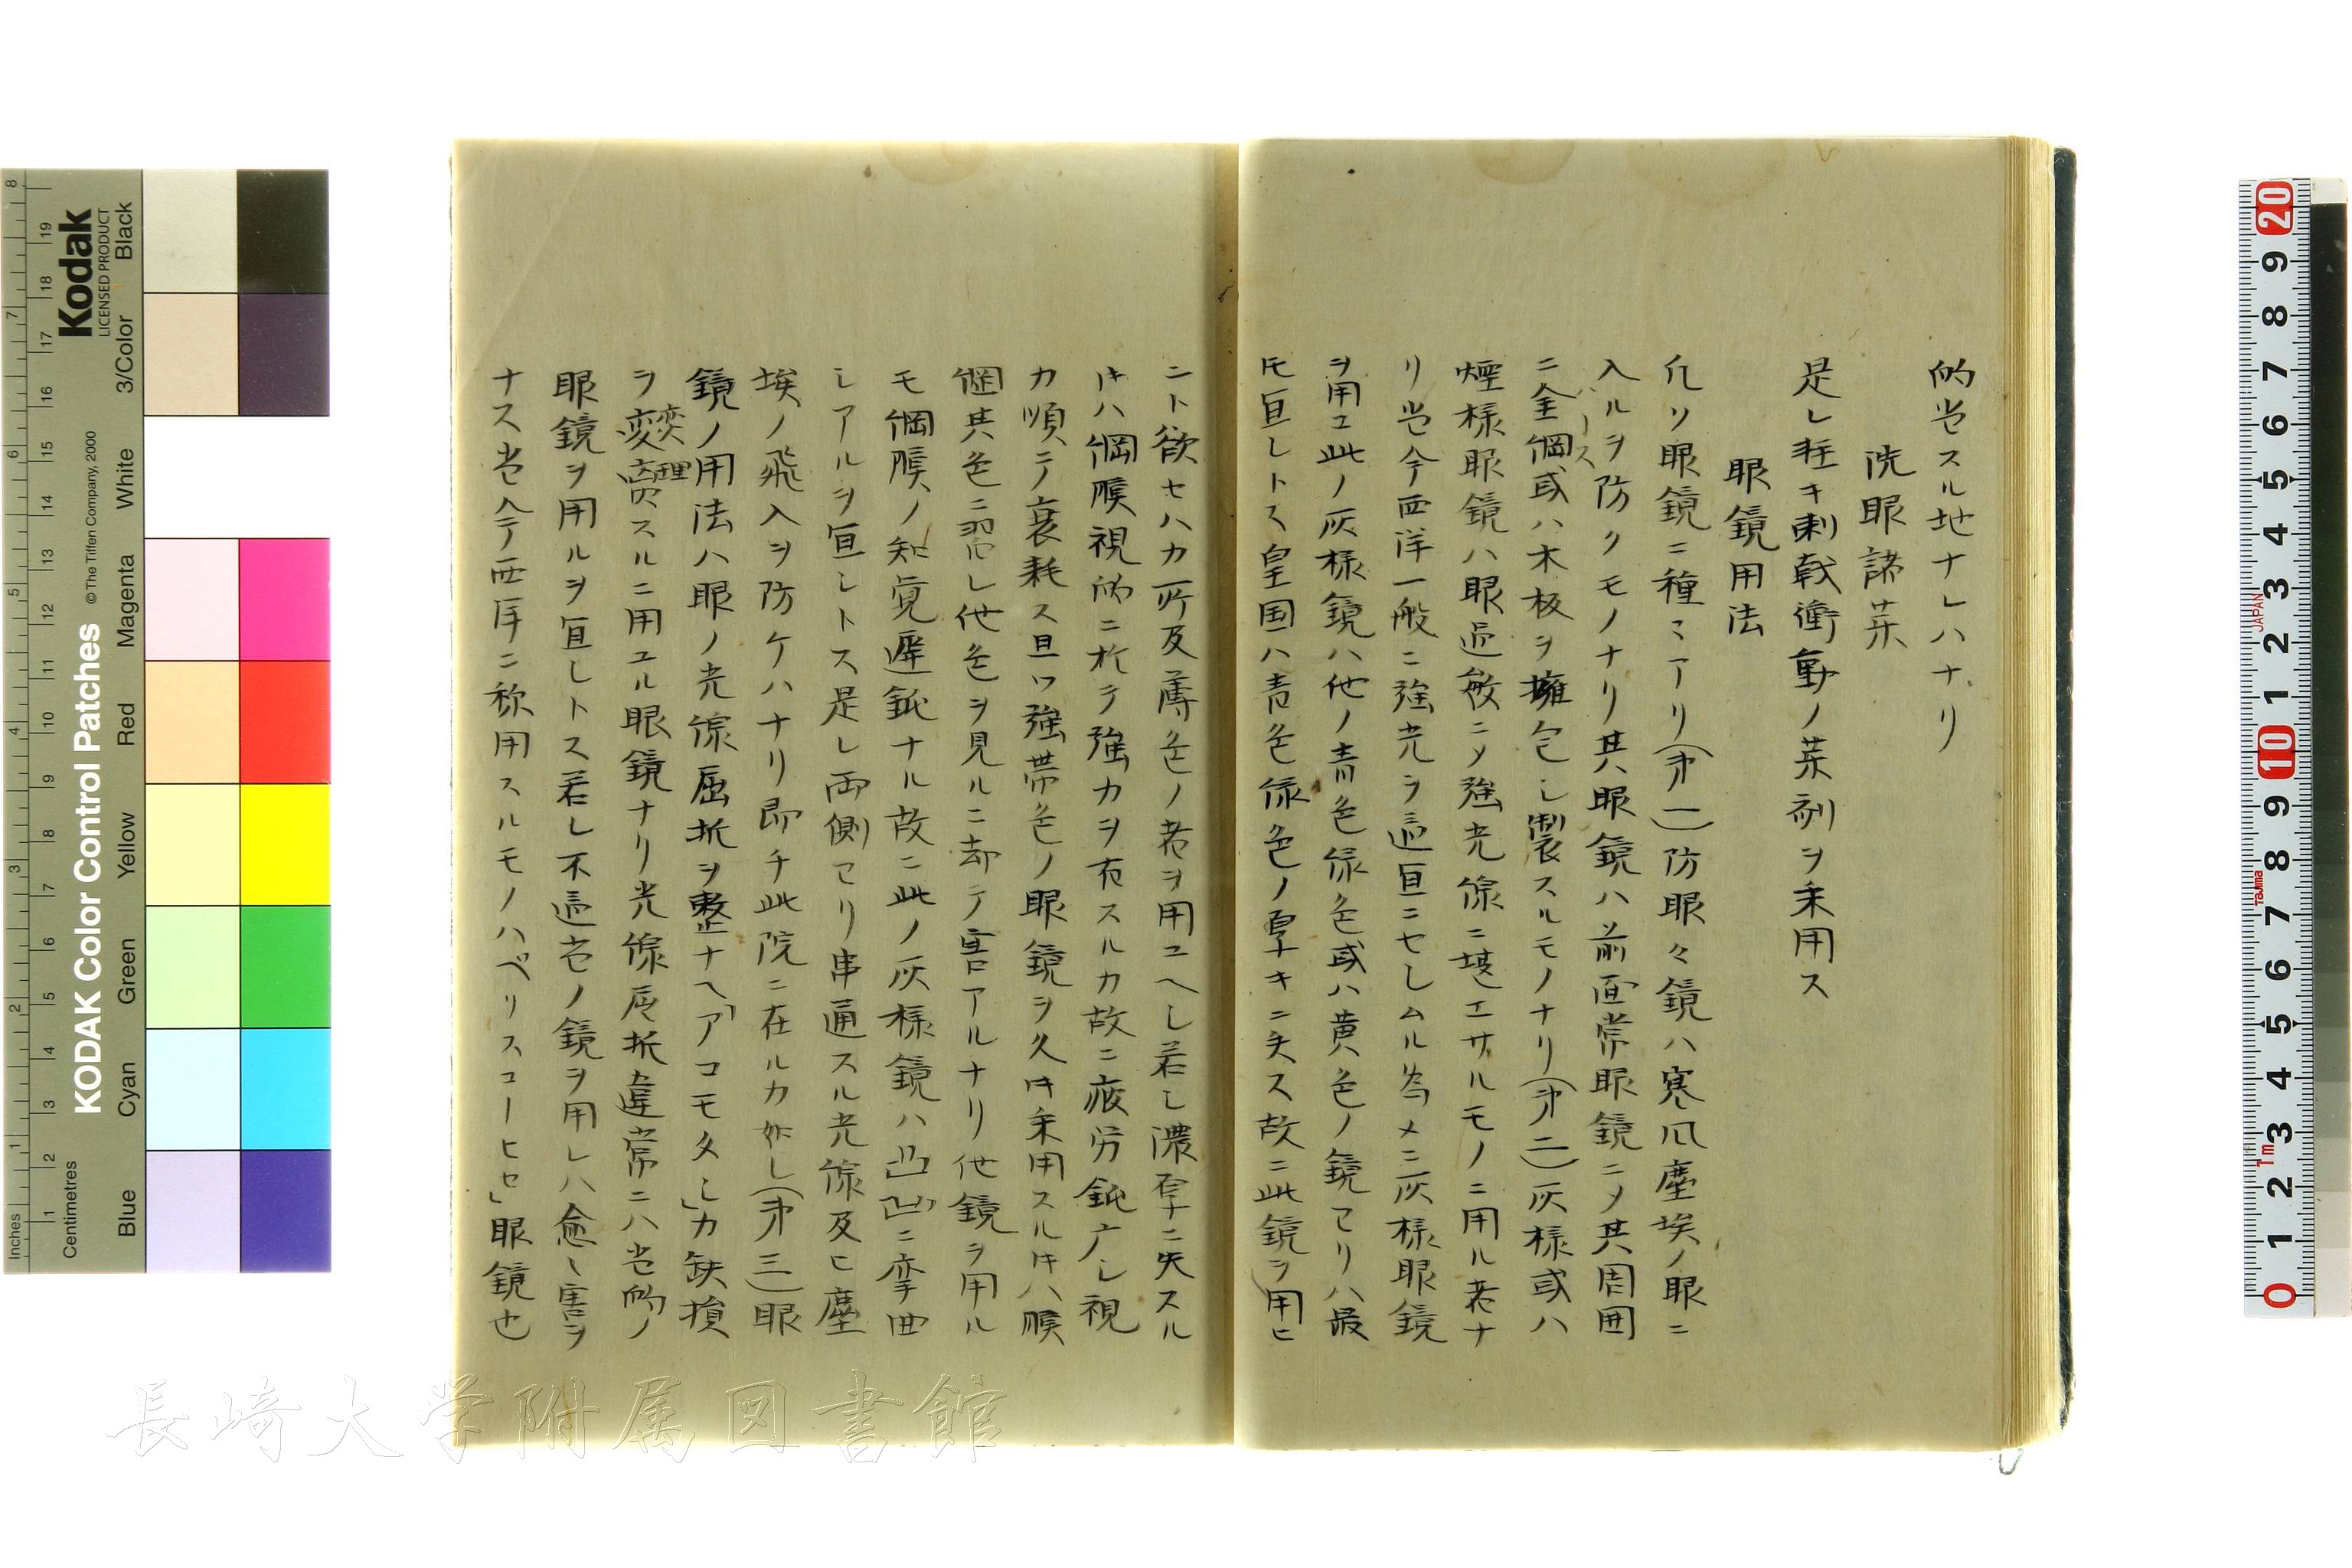 的当スル地ナレハナリ
洗眼諸薬
是レ軽キ刺戟衝動ノ薬剤ヲ用ス
眼鏡用法
凡ソ眼鏡ニ種々アリ(第一)防眼々鏡ハ寒風塵埃ノ眼ニ
入ルヲ防クモノナリ其眼鏡ハ前面常眼鏡ニメ其周囲
ニ金網或ハ木板ヲ擁包シ製スルモノナリ(第二)灰様或ハ
煙様眼鏡ハ眼過敏ニメ強光線ニ堪エサルモノニ用ル者ナ
リ当今西洋一般ニ強光ヲ適宜ニセシムル為メニ灰様眼鏡
ヲ用ユ此ノ灰様鏡ハ他ノ青色緑色或ハ黄色ノ鏡ヨリハ最
モ宜シトス皇国ハ青色緑色ノ厚キニ失ス故ニ此鏡ヲ用ヒ
ント欲セハカ所及薄色ノ者ヲ用ユヘし若し濃厚ニ失スル
キハ網膜視的ニ於テ強力ヲ有スルカ故ニ疲労鈍广し視
力順テ衰耗ス且ツ強帯色ノ眼鏡ヲ久キ用スルキハ膜
網其色ニ習し他色ヲ見ルニ却テ害アルナリ他鏡ヲ用ル
モ網膜ノ知覚遅鈍ナル故ニ此ノ灰様鏡ハ凸凹ニ弯曲
シアルヲ宜シトス是レ両側ヨリ串通スル光線及ヒ塵
埃ノ飛入ヲ防ケハナリ即チ此院ニ在ルカ如し(第三)眼
鏡ノ用法ハ眼ノ光線屈折ヲ整ナヘ「アコモタシ」カ缺損
ヲスルニ用ユル眼鏡ナリ光線屈折違常ニハ当的ノ
眼鏡ヲ用ルヲ宜しトス若し不適当ノ鏡ヲ用レハ愈々害ヲ
ナス当今西洋ニ称用スルモノハ「ペリスコーヒセ」眼鏡也
Kodak
LICENSED PRODUCT
KODAK Color Control Patches
© The Tiffen Company, 2000
Inches
Centimetres
Blue
Cyan
Green
Yellow
Red
Magenta
White
3/Color
Black
JAPAN
TaJima
1m
長崎大学附属図書館